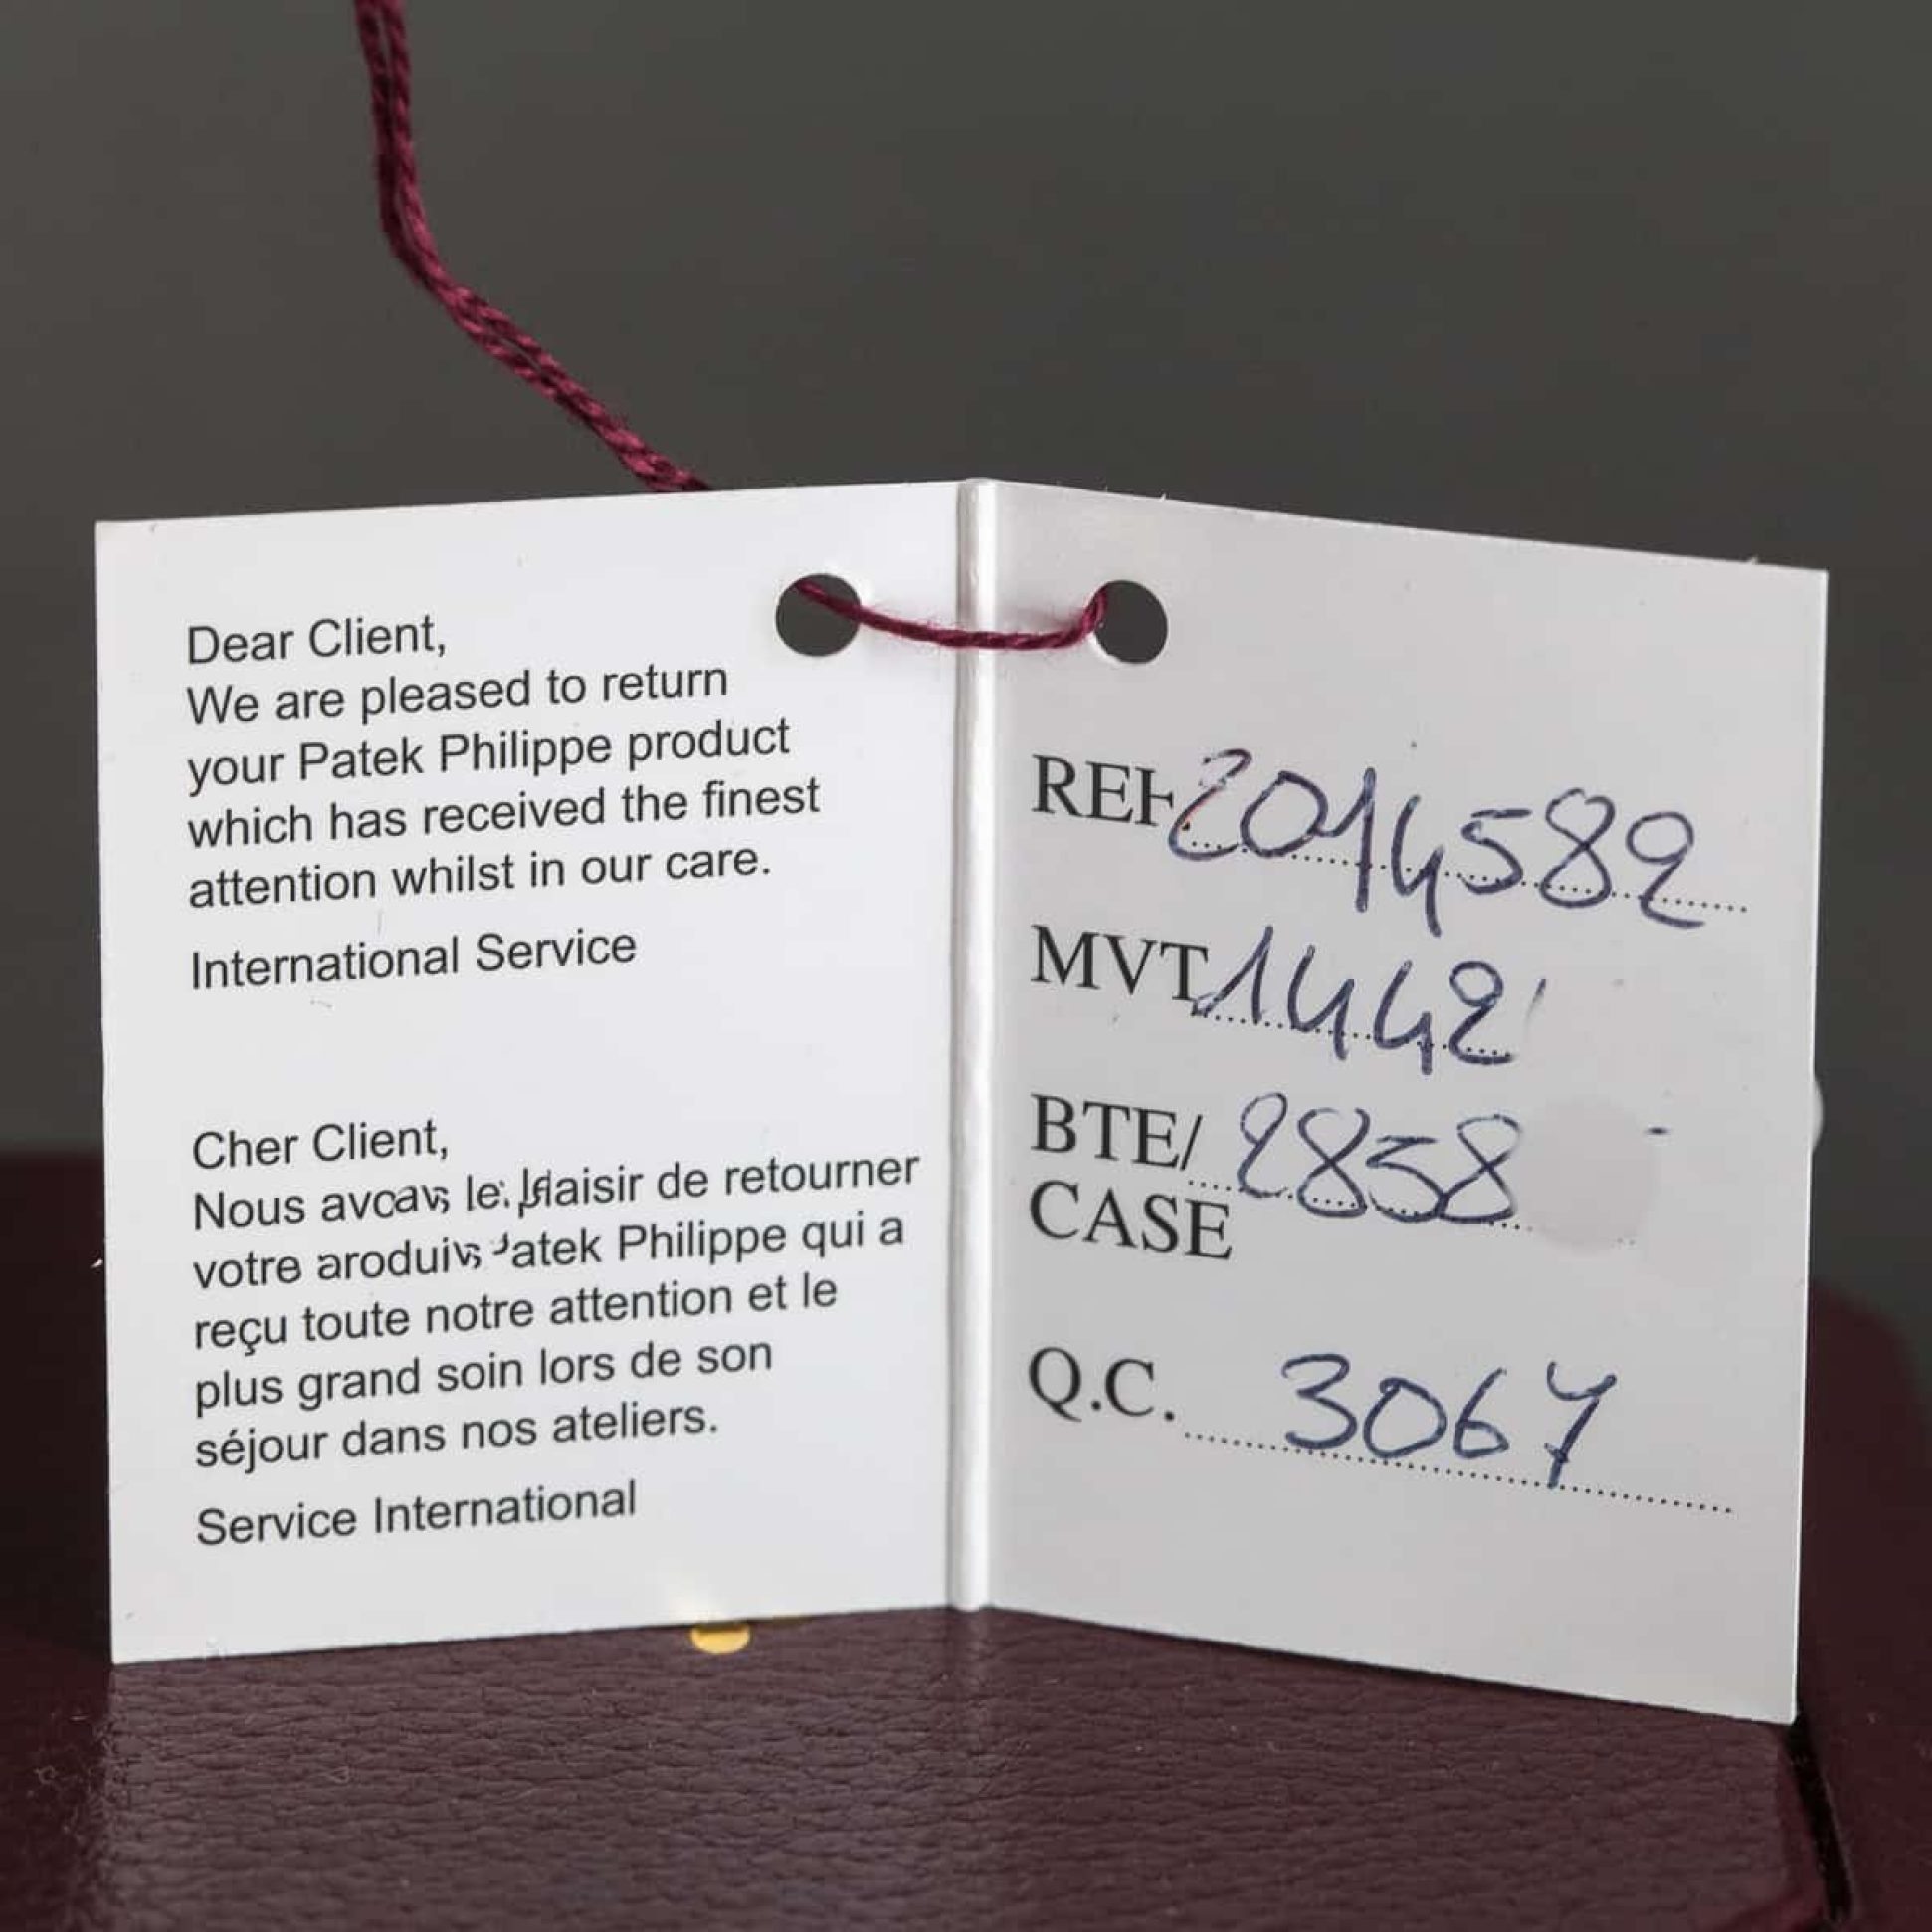 Dear Client,
We are pleased to return
your Patek Philippe product
which has received the finest
attention whilst in our care.
International Service
Cher Client,
Nous le plaisir de retourner
votre Philippe qui a
reçu toute notre attention et le
plus grand soin lors de son
séjour dans nos ateliers.
Service International
REF 2014582
MVT 1442
BTE/ 2838
CASE
Q.C. 3067